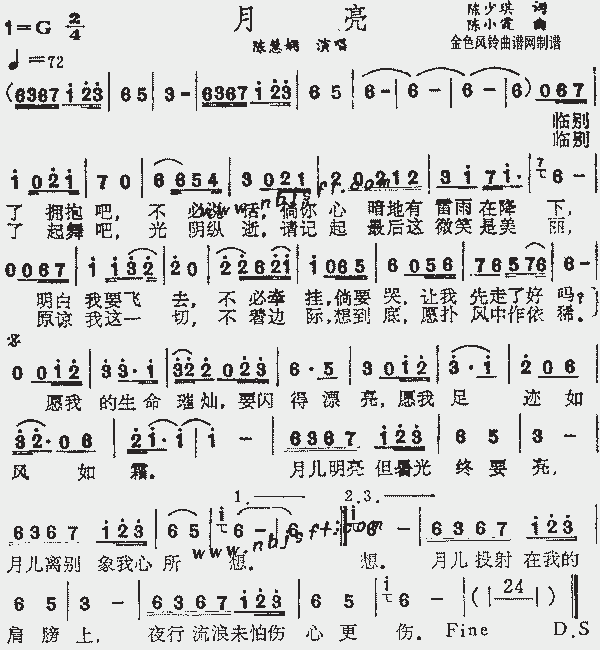 月 亮
1=G 2/4
陈少琪 词
陈小霞 曲
陈慧娴 演唱
金色风铃曲谱网制谱
♩=72
(6367 1 23 | 6 5 | 3 - | 6367 1 23 | 6 5 | 6 - | 6 - | 6 - | 6 - ) 067
临别
临别
1 021 | 7 0 | 6 654 | 3 021 | 2 020212 | 3 1 7 1· | 6 - |
了 拥抱 吧, 不 必说 话, 倘你 心 暗地有 雷雨在降 下,
了 起舞 吧, 光 阴纵 逝, 请记 起 最后这 微笑是美 丽,
www.nbjsft.com
0 067 | 1 132 | 2 0 | 2 2621 | 1065 | 6 056 | 7 6576 | 6 - |
明白 我要飞 去, 不 必牵 挂,倘要 哭,让我 先走了好 吗?
原谅 我这一 切, 不 着边 际,想到 底,愿扑 风中作依 稀。
0 012 | 33·1 | 322 023 | 6·5 | 3 012 | 3·1 | 206 |
愿我 的生命 璀灿,要闪 得漂 亮,愿我 足 迹如
32·06 | 21·1 | 1 - | 6367 123 | 6 5 | 3 - |
风 如 霜。 月儿明亮 但曙光 终要 亮,
1. 2.3.
6367 123 | 6 5 | 6 - | 6 | 6 - | 6367 123 |
月儿离别 象我心 所 想。 想。 月儿投射 在我的
www.nbjsft.com
6 5 | 3 - | 6367 123 | 6 5 | 6 - | ( | 24 | )
肩膀 上, 夜行流浪未怕伤 心更 伤。 Fine D.S